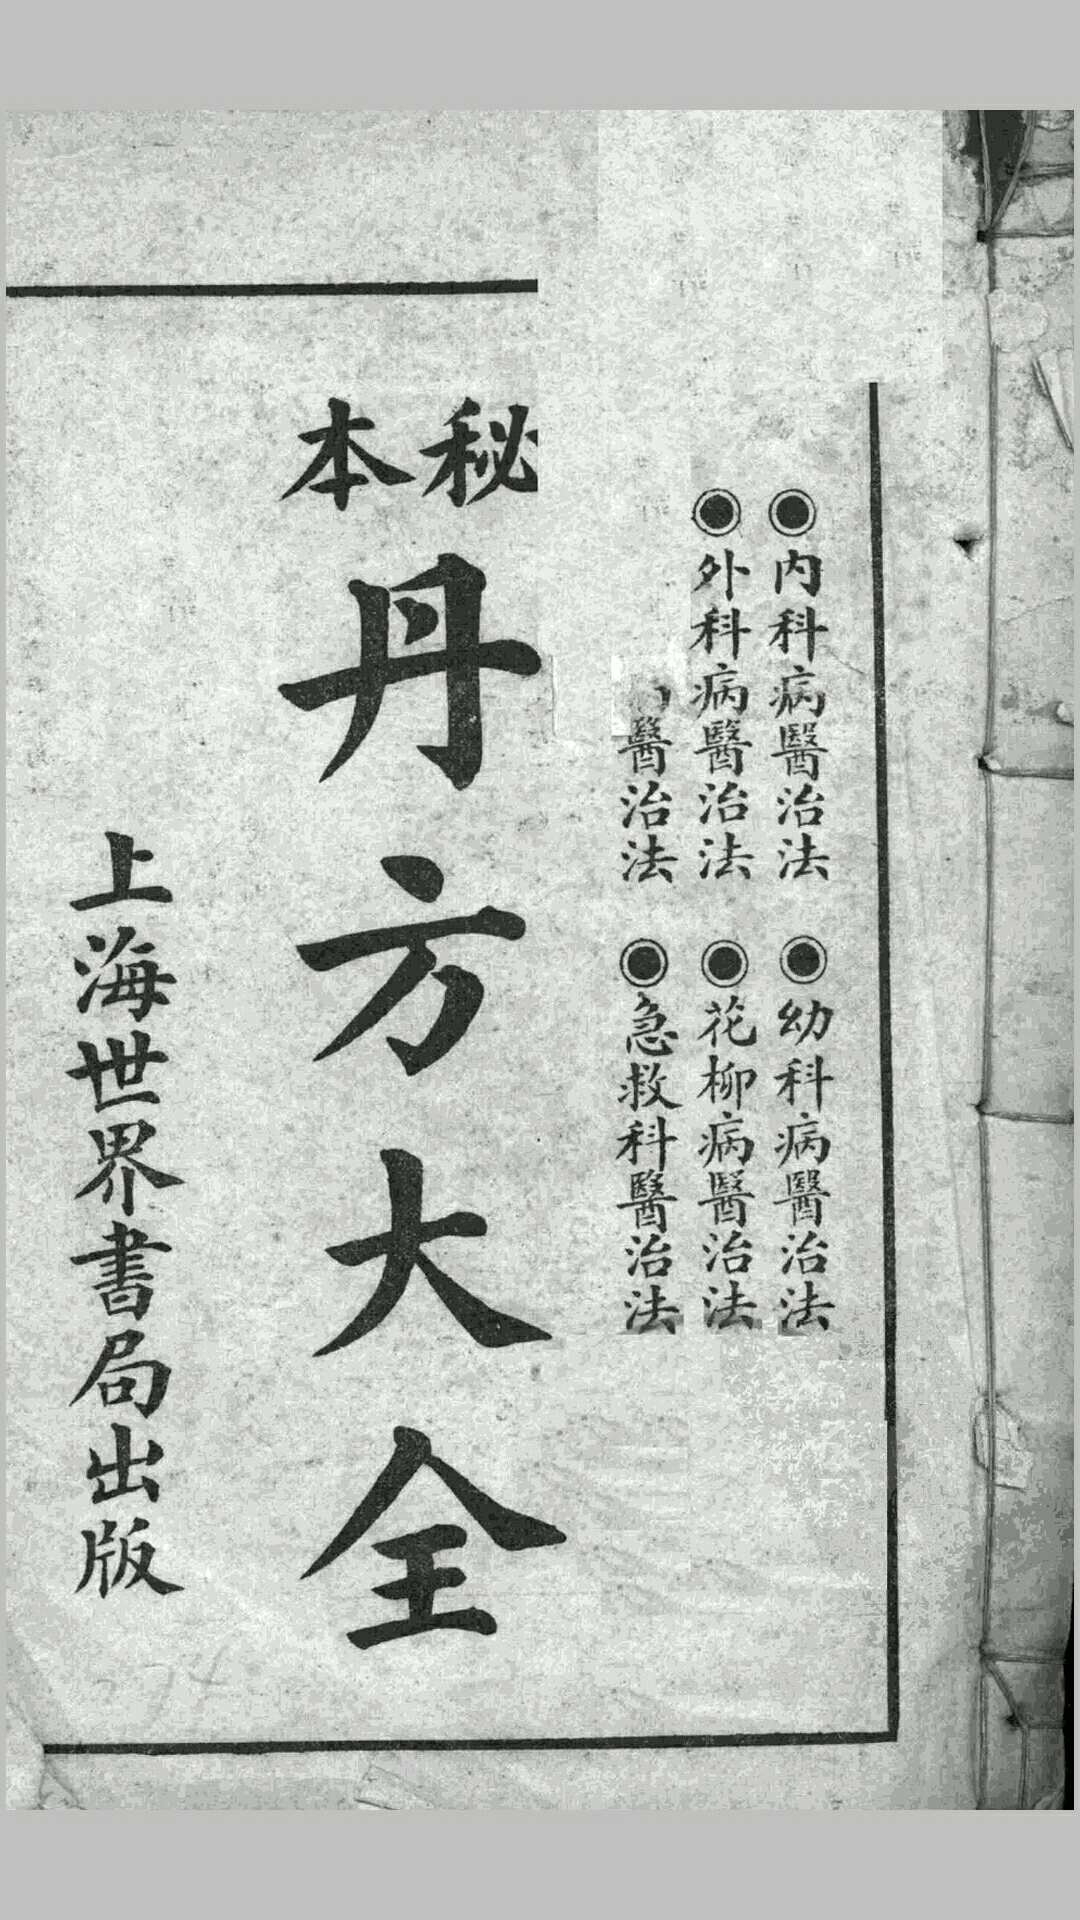 內科病醫治法
外科病醫治法
醫治法
幼科病醫治法
花柳病醫治法
急救科醫治法
秘本
丹方大全
上海世界書局出版